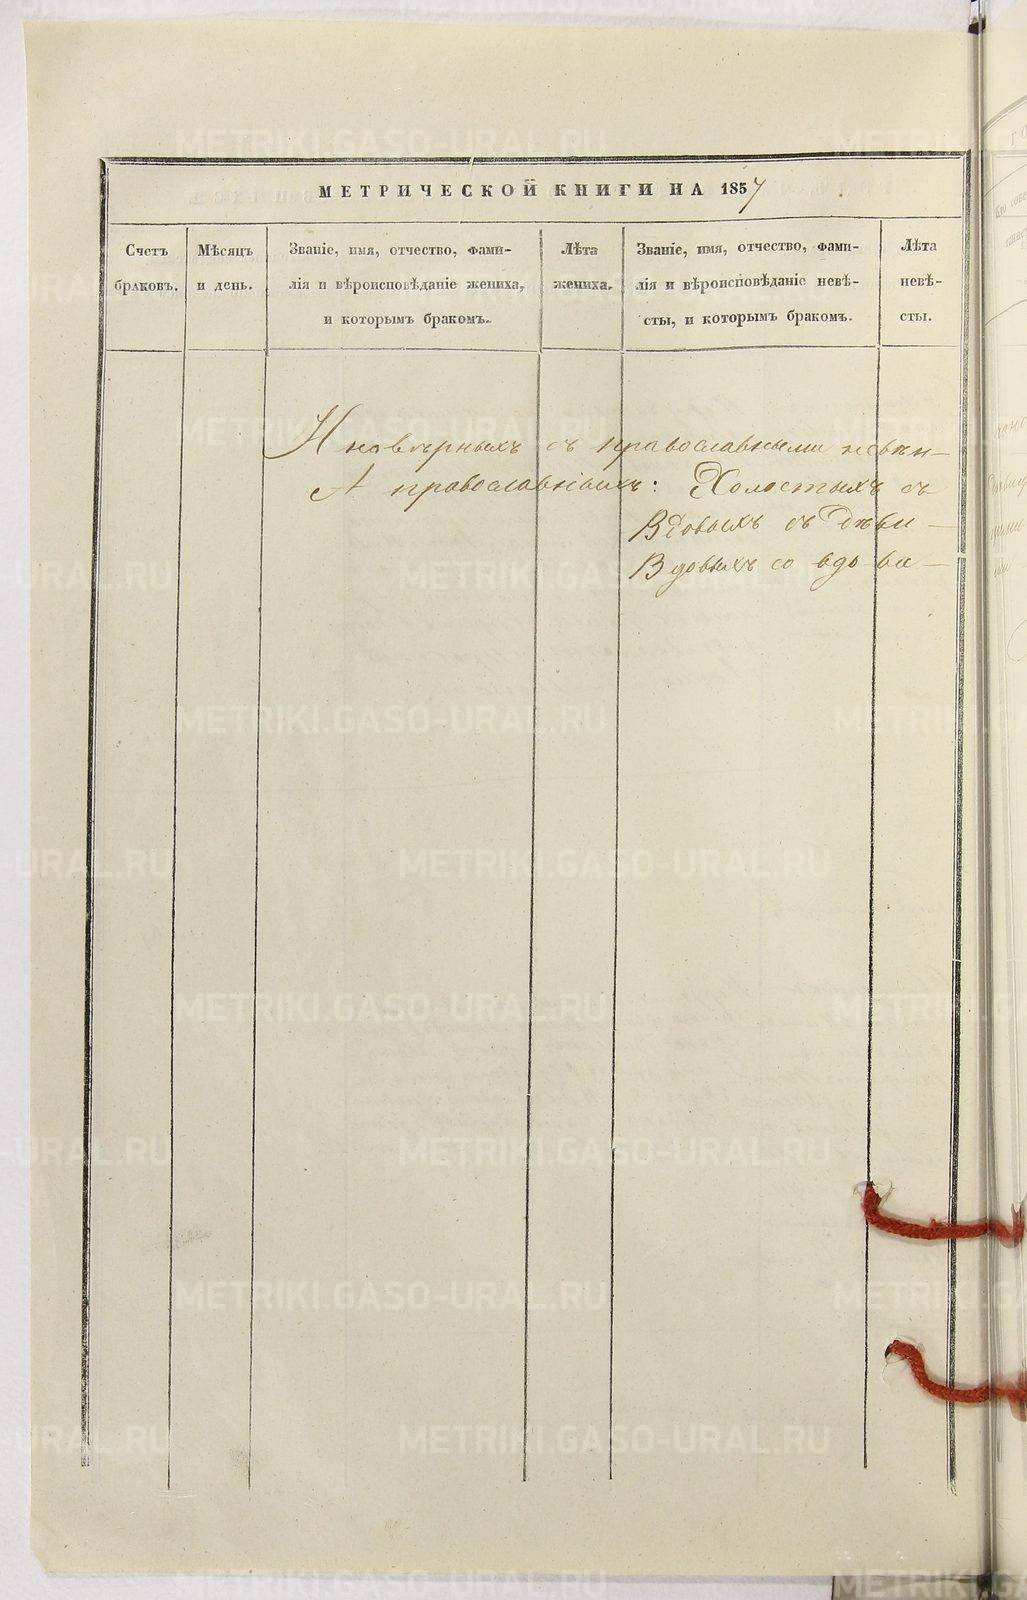 МЕТРИЧЕСКОЙ КНИГИ НА 1857
Счетъ браковъ.
Мѣсяцъ и день.
Званіе, имя, отчество, фами-
лія и вѣроисповѣданіе жениха,
и которымъ бракомъ.
Лѣта жениха.
Званіе, имя, отчество, фами-
лія и вѣроисповѣданіе невѣ-
сты, и которымъ бракомъ.
Лѣта невѣ-
сты.
Иновѣрныхъ съ православными
А православныхъ: Холостыхъ съ
Вдовыхъ съ Дѣви—
Вдовыхъ со вдова—
METRIKI.GASO-URAL.RU